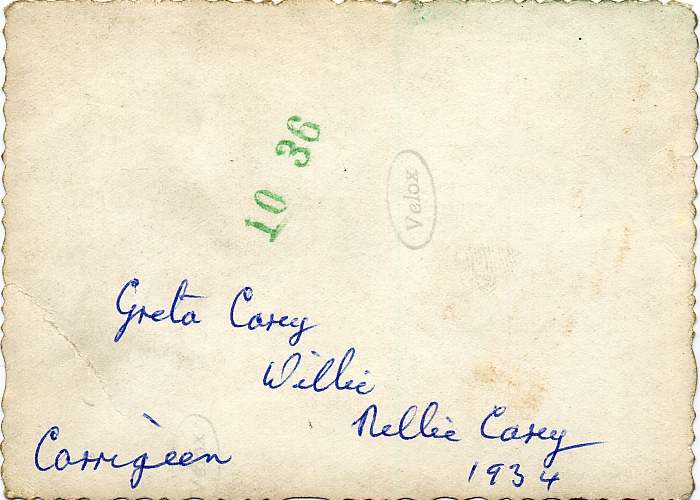 10 36
Velox
Greta Carey
Willie
Nellie Carey
Carrigeen
1934